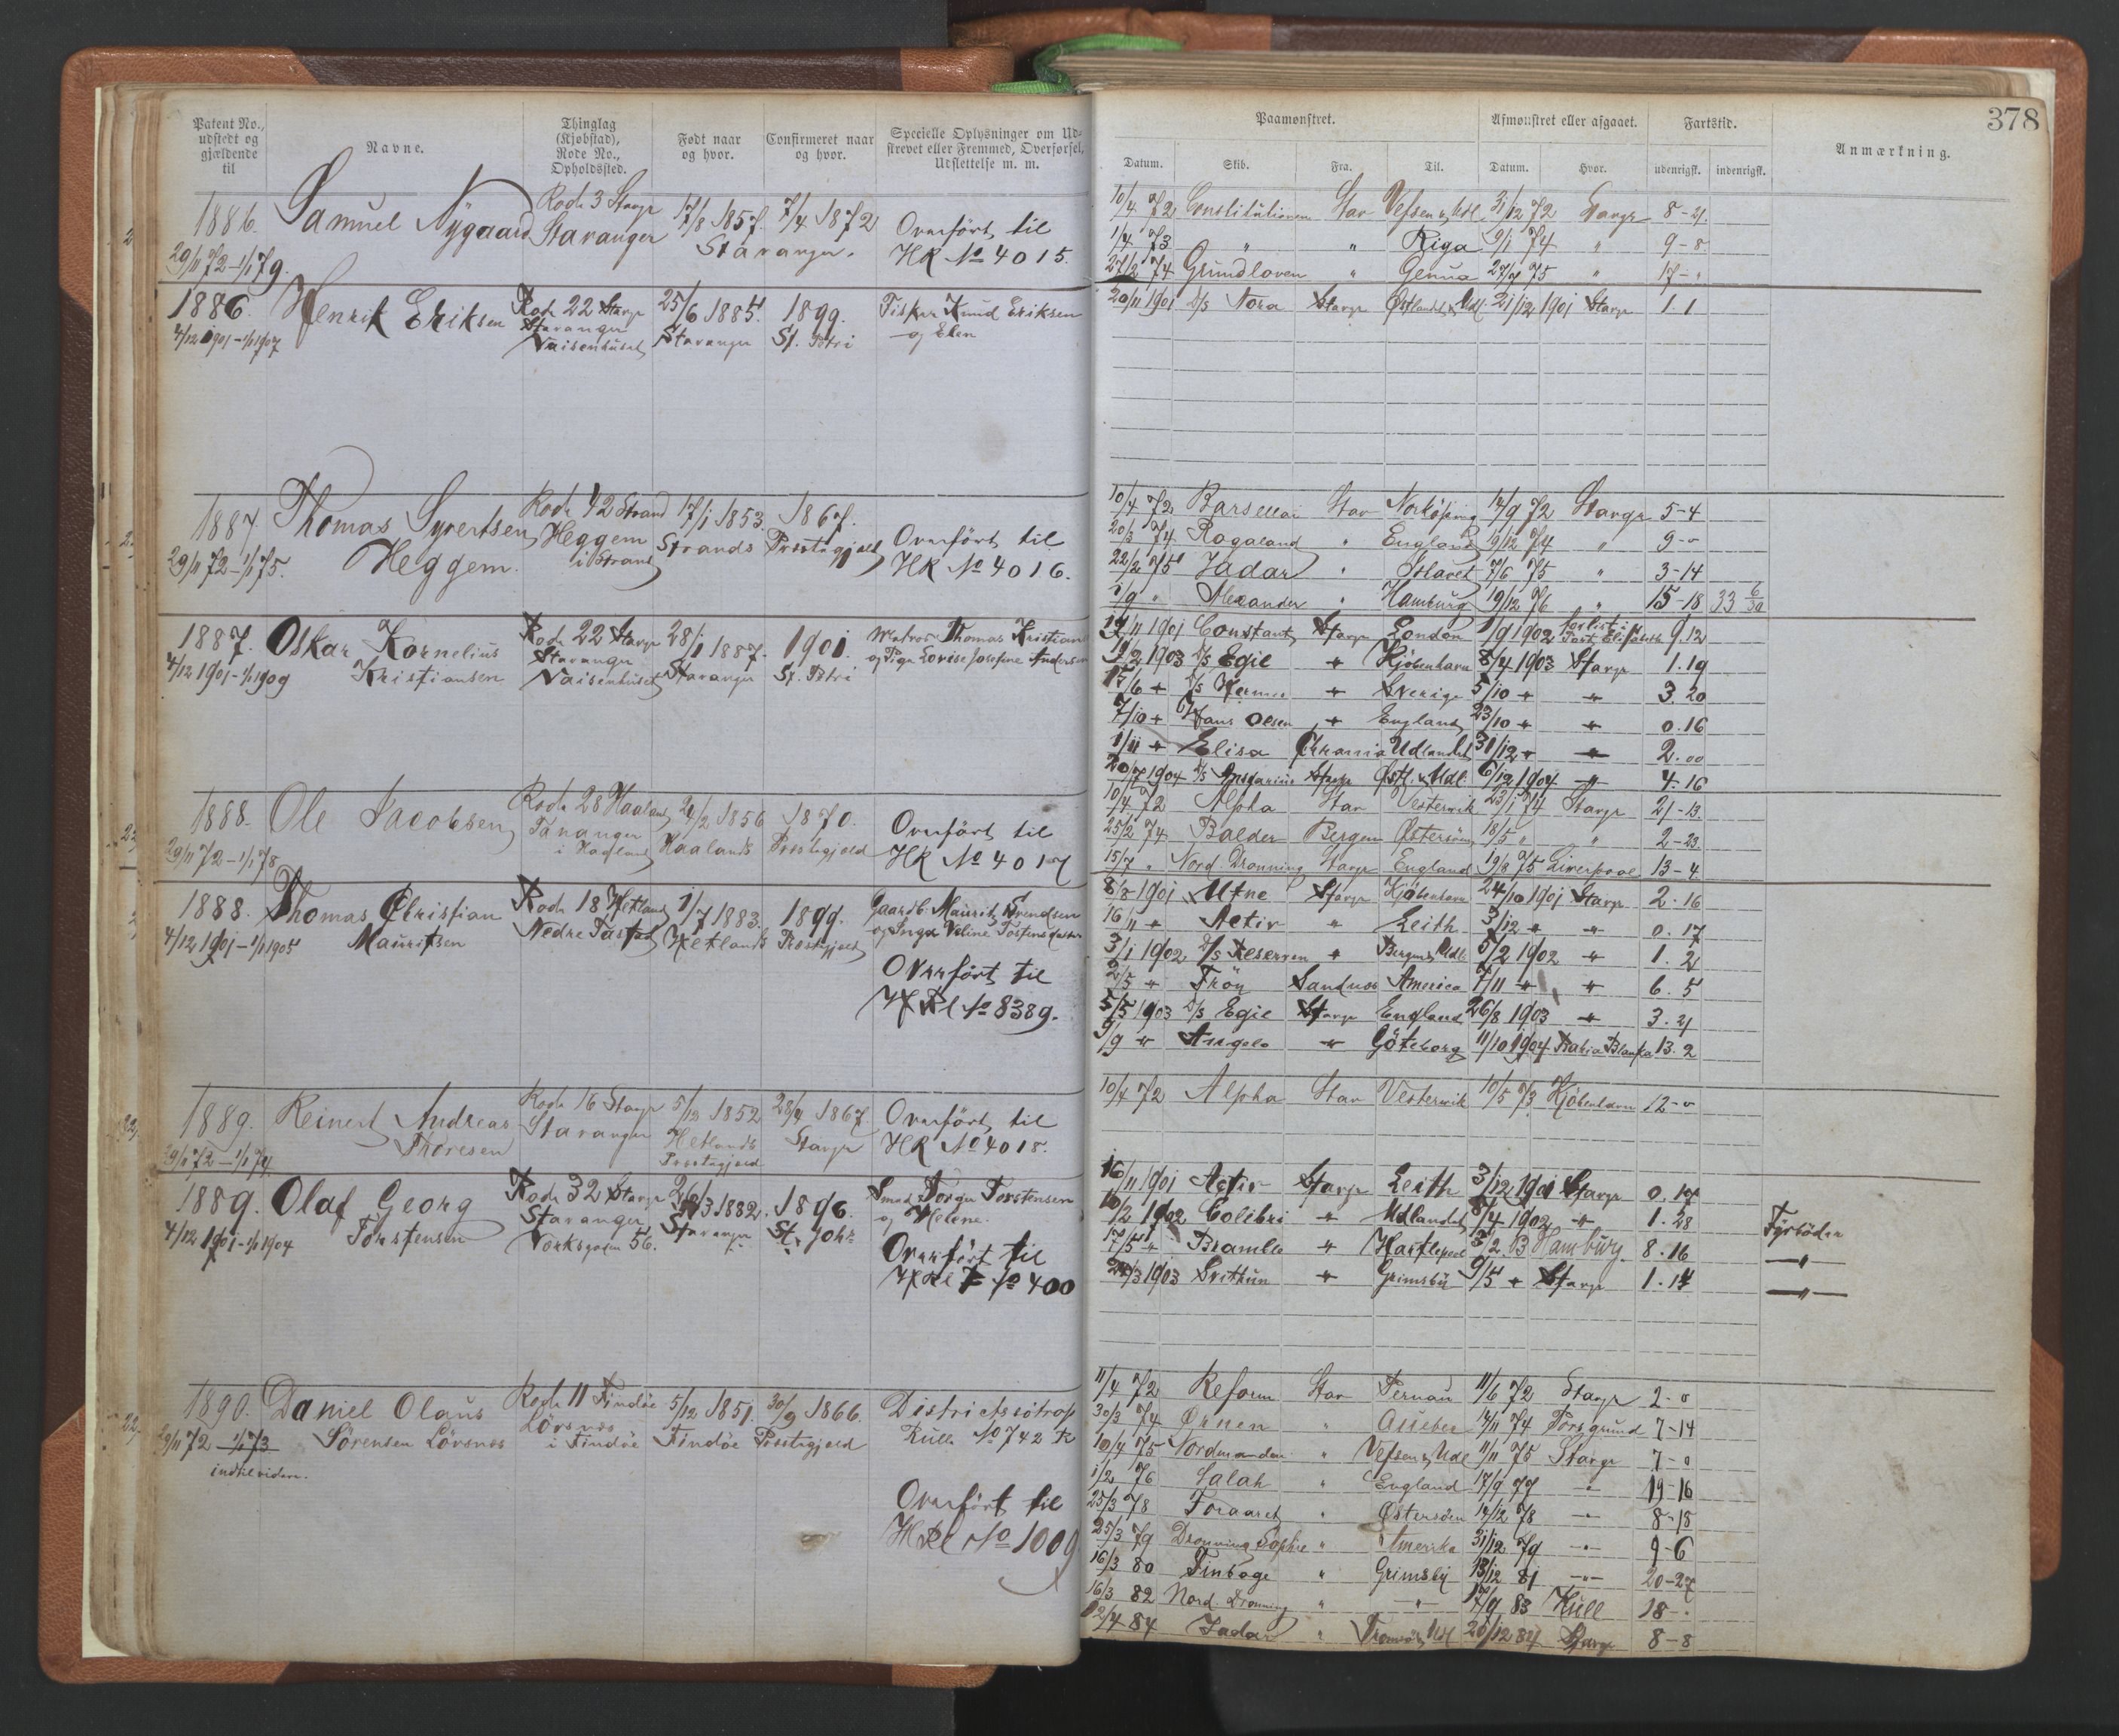 378
Patent No., udstedt og gjældende til
Navne.
Thinglag (Kjøbstad), Rode No., Opholdssted.
Født naar og hvor.
Confirmeret naar og hvor.
Specielle Oplysninger om Udstrevet eller Fremmed, Overførsel, Udslettelse m. m.
Paamønstret.
Afmønstret eller afgaaet.
Fartstid.
Anmærkning.
Datum. Skib. Fra. Til. Datum. Hvor. udenrigsk. indenrigsk.
1886. Samuel Nygaard Rode 3 Stavgr 17/8 1857. 7/4 1872 Overført til
29/11 72 – 1/1 79. Stavanger Stavanger. HR No 4015.
10/4 72 Constitutionen Stav Vefsen & Udl. 31/12 72 Stavgr 8-21.
1/4 73 " " Riga 9/1 74 " 9-8
27/2 74 Grundloven " Genua 27/7 75 " 17-"
1886. Henrik Eriksen Rode 22 Stavgr 25/6 1885. 1899. Fisker Knud Eriksen
4/12 1901 – 1/1 1907 Stavanger Vaisenhuset Stavanger St. Petri og Elen
20/11 1901 D/S Nora Stavgr Østlandet & Udl. 21/12 1901 Stavgr 1.1
1887. Thomas Syvertsen Rode 42 Strand 17/1 1853. 1867.
29/11 72 – 1/1 75. Heggem. Heggem i Strand Strands Præstegjeld Overført til HR No 4016.
10/4 72 Barsellai Stav Norköping 14/9 72 Stavgr 5-4
20/3 74 Rogaland " England 19/12 74 " 9-"
22/2 75 Jadar " 7/6 75 " 3-14
1/9 " Alexander " Hamburg 19/12 76 " 15-18 33 6/30
1887. Oskar Kornelius Rode 22 Stavgr 28/1 1887. 1901. Matros Thomas Kristian
4/12 1901 – 1/1 1909 Kristiansen Stavanger Vaisenhuset Stavanger St. Petri og Pige Lovise Josefine Andersen
1901 Constant Stavgr London 1/9 1902 forlist i Port Elisabeth 9.12
1903 D/S Egil " Kjøbenhavn 8/4 1903 Stavgr 1.19
15/6 " D/S Hermes " Sverige 5/10 " " 3.20
7/10 " Hans Olsen " England 23/10 " " 0.16
1/11 " Elisa Chrania Udlandet 31/12 " " 2.00
20/7 1904 D/S Ansgarius Stavgr Østl. & Udl. 6/12 1904 " 4.16
1888. Ole Jacobsen Rode 28 Haaland 24/2 1856 1870. Overført til
29/11 72 – 1/1 78 Tananger i Haaland Haalands Præstegjeld HR No 4017
10/4 72 Alpha Stav Vestervik 23/1 74 Stavgr 21-13.
25/2 74 Balder Bergen Østersøen 18/5 " " 2-23
15/7 " Nord. Dronning Stavgr England 19/8 75 Liverpool 13-4
1888. Thomas Christian Rode 18 Hetland 1/7 1883. 1899. Gaardb. Maurits Svendsen
4/12 1901 – 1/1 1905 Mauritsen Nedre Tasta Hetlands Prestegjeld og Inga Veline Torstensdatter
Overført til
HRl No 8389.
8/8 1901 Utne Stavgr Kjøbenhavn 24/10 1901 Stavgr 2.16
16/11 " Activ " Leith 3/12 " " 0.17
3/1 1902 D/S Reserven " Bergen & Udl. 5/2 1902 " 1.2
2/5 " Frøy Sandnes America 7/11 " " 6.5
5/5 1903 D/S Egil Stavgr England 26/8 1903 " 3.21
9/9 " Angelo " Göteborg 11/10 1904 Bahia Blanka 13.2
1889. Reinert Andreas Rode 16 Stavgr 5/12 1852 28/4 1867 Overført til
29/11 72 – 1/1 74 Thoresen Stavanger Hetlands Præstegjeld Stavgr HR No 4018.
10/4 72 Alpha Stav Vestervik 10/5 73 Kjöbenhavn 12-"
1889. Olaf Georg Rode 32 Stavgr 26/3 1882. 1896. Smed Torger Torstensen
4/12 1901 – 1/1 1904 Torstensen Stavanger Verksgaden 56. Stavanger St. Johs og Helene.
Overført til
HRl F No 400
16/11 1901 Activ Stavgr Leith 3/12 1901 Stavgr 0.17
10/2 1902 Colibri " Udlandet 8/4 1902 " 1.28 Fyrbøder
17/5 " Bramble " Hartlepool 3/2 03 Hamburg 8.16 "
24/3 1903 Svithun " Grimsby 9/5 " Stavgr 1.14 "
1890. Daniel Olaus Rode 11 Findöe 5/12 1851. 30/9 1866. Districtssötrop
29/11 72 – 1/1 73 Sörensen Lövsnes Lövsnes i Findöe Findöe Præstegjeld Rulle No 742 R
indtil videre.
Overført til
HRl No 1009
11/4 72 Reform Stav Pernau 11/6 72 Stavgr 2-"
30/3 74 Ørnen " 14/11 74 Porsgrund 7-14
10/4 75 Nordmanden " Vefsen & Udl 11/11 75 Stavgr 7-"
1/2 76 Salah " England 17/9 77 " 19-16
25/3 78 Foraaret " Østersöen 12/12 78 " 8-18
25/3 79 Dronning Sophie " Amerika 31/12 79 " 9-6
16/3 80 Finboge " Grimsby 13/12 81 " 20-27
16/3 82 Nord. Dronning " " 17/9 83 Hull 18-"
12/4 84 Jadar " Tromsö & Udl 20/12 84 Stavgr 8-8